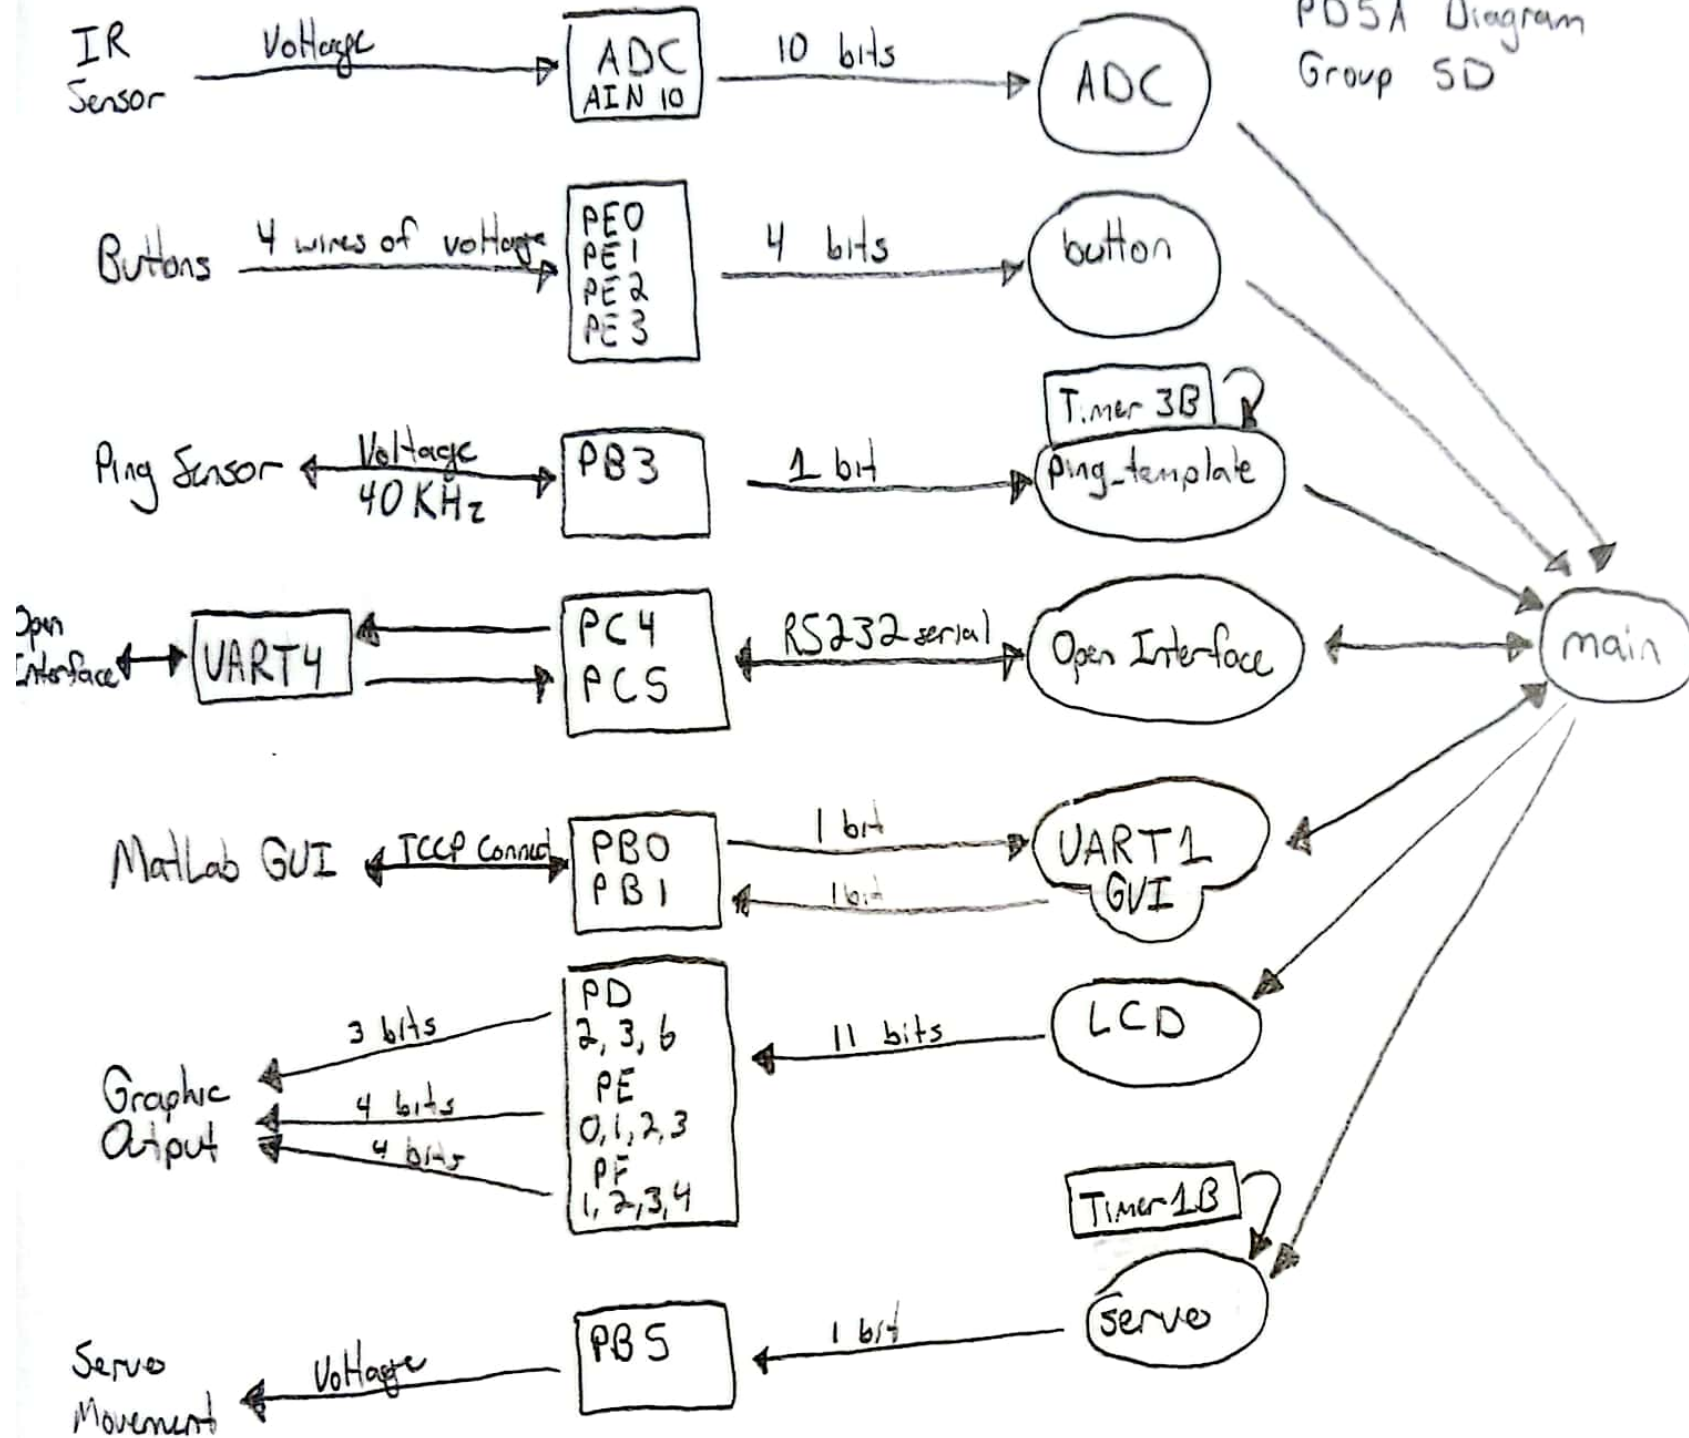 PDSA Diagram
Group SD
IR
Sensor
Voltage
ADC
AIN 10
10 bits
ADC
Buttons
4 wires of voltage
PE0
PE1
PE2
PE3
4 bits
button
Ping Sensor
Voltage
40 KHz
PB3
1 bit
Timer 3B
Ping_template
Open
Interface
UART4
PC4
PC5
RS232 serial
Open Interface
main
MatLab GUI
TCCP Connect
PB0
PB1
1 bit
1 bit
UART1
GUI
Graphic
Output
3 bits
4 bits
4 bits
PD
2, 3, 6
PE
0, 1, 2, 3
PF
1, 2, 3, 4
11 bits
LCD
Servo
Movement
Voltage
PB5
1 bit
Timer 1B
Servo